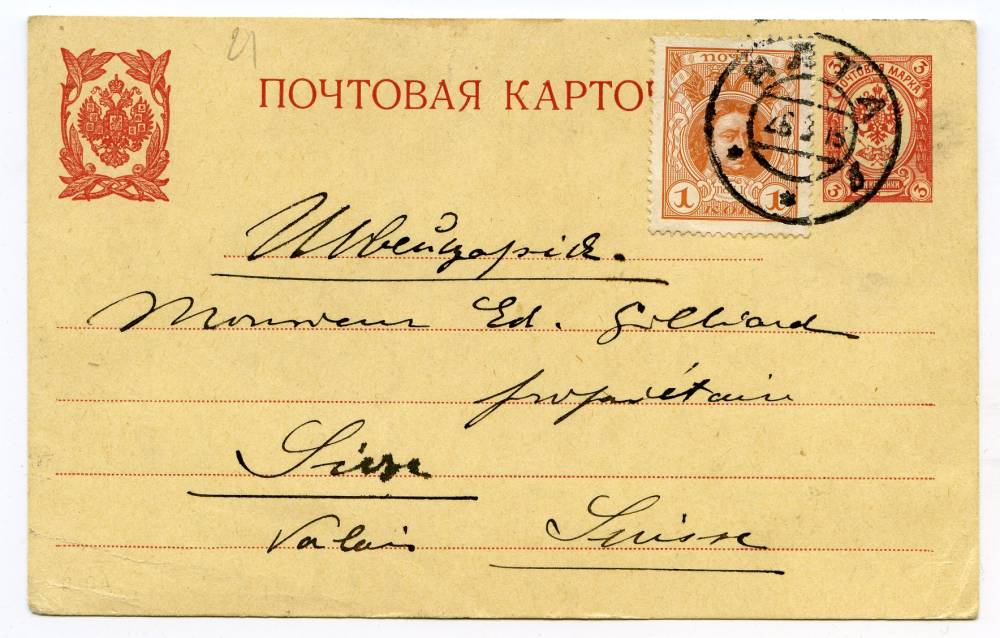 21
ПОЧТОВАЯ КАРТОЧ
ПОЧТ
1 1
КОП
ПОЧТОВАЯ МАРКА
3 3
3 3
ЯЛТА
26 2 15
Швейцарія.
Monsieur Ed. Gilliard
propriétaire
Sierre
Valais Suisse